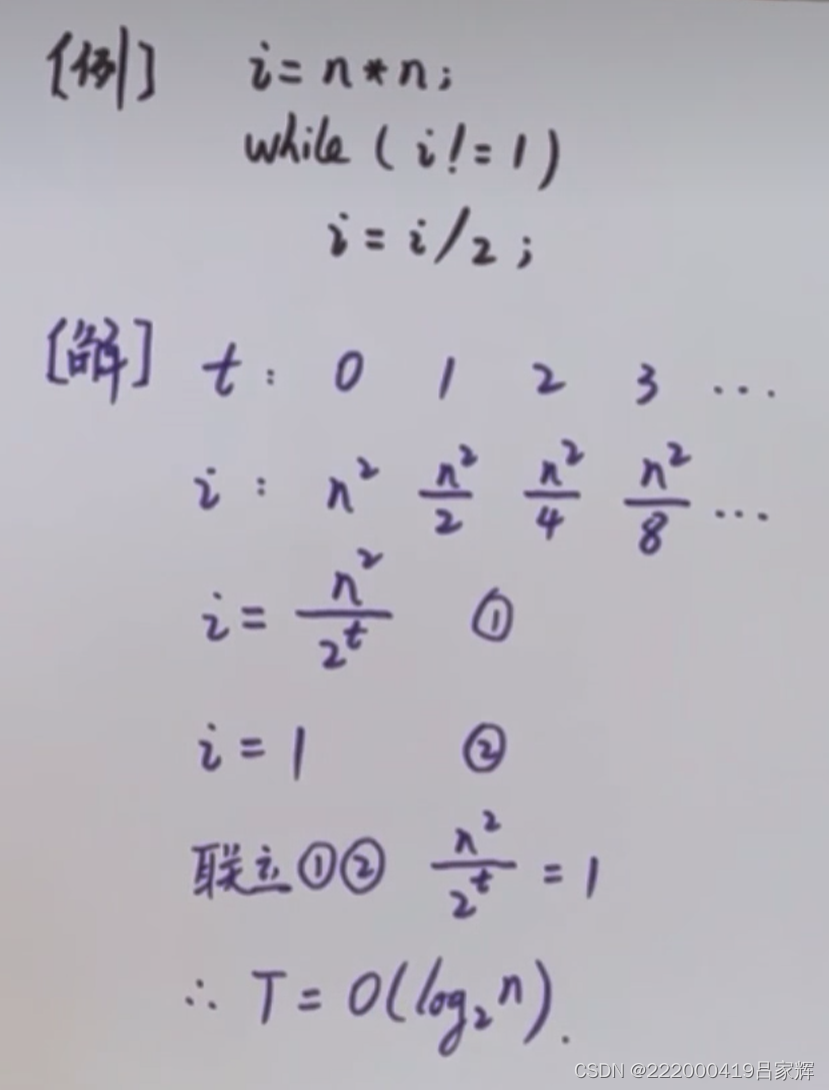 [例] i = n * n;
while ( i != 1 )
i = i / 2 ;
[解] t : 0 1 2 3 ...
i : n² n²/2 n²/4 n²/8 ...
i = n²/2^t ①
i = 1 ②
联立①② n²/2^t = 1
∴ T = O(log₂n).
CSDN @222000419吕家辉